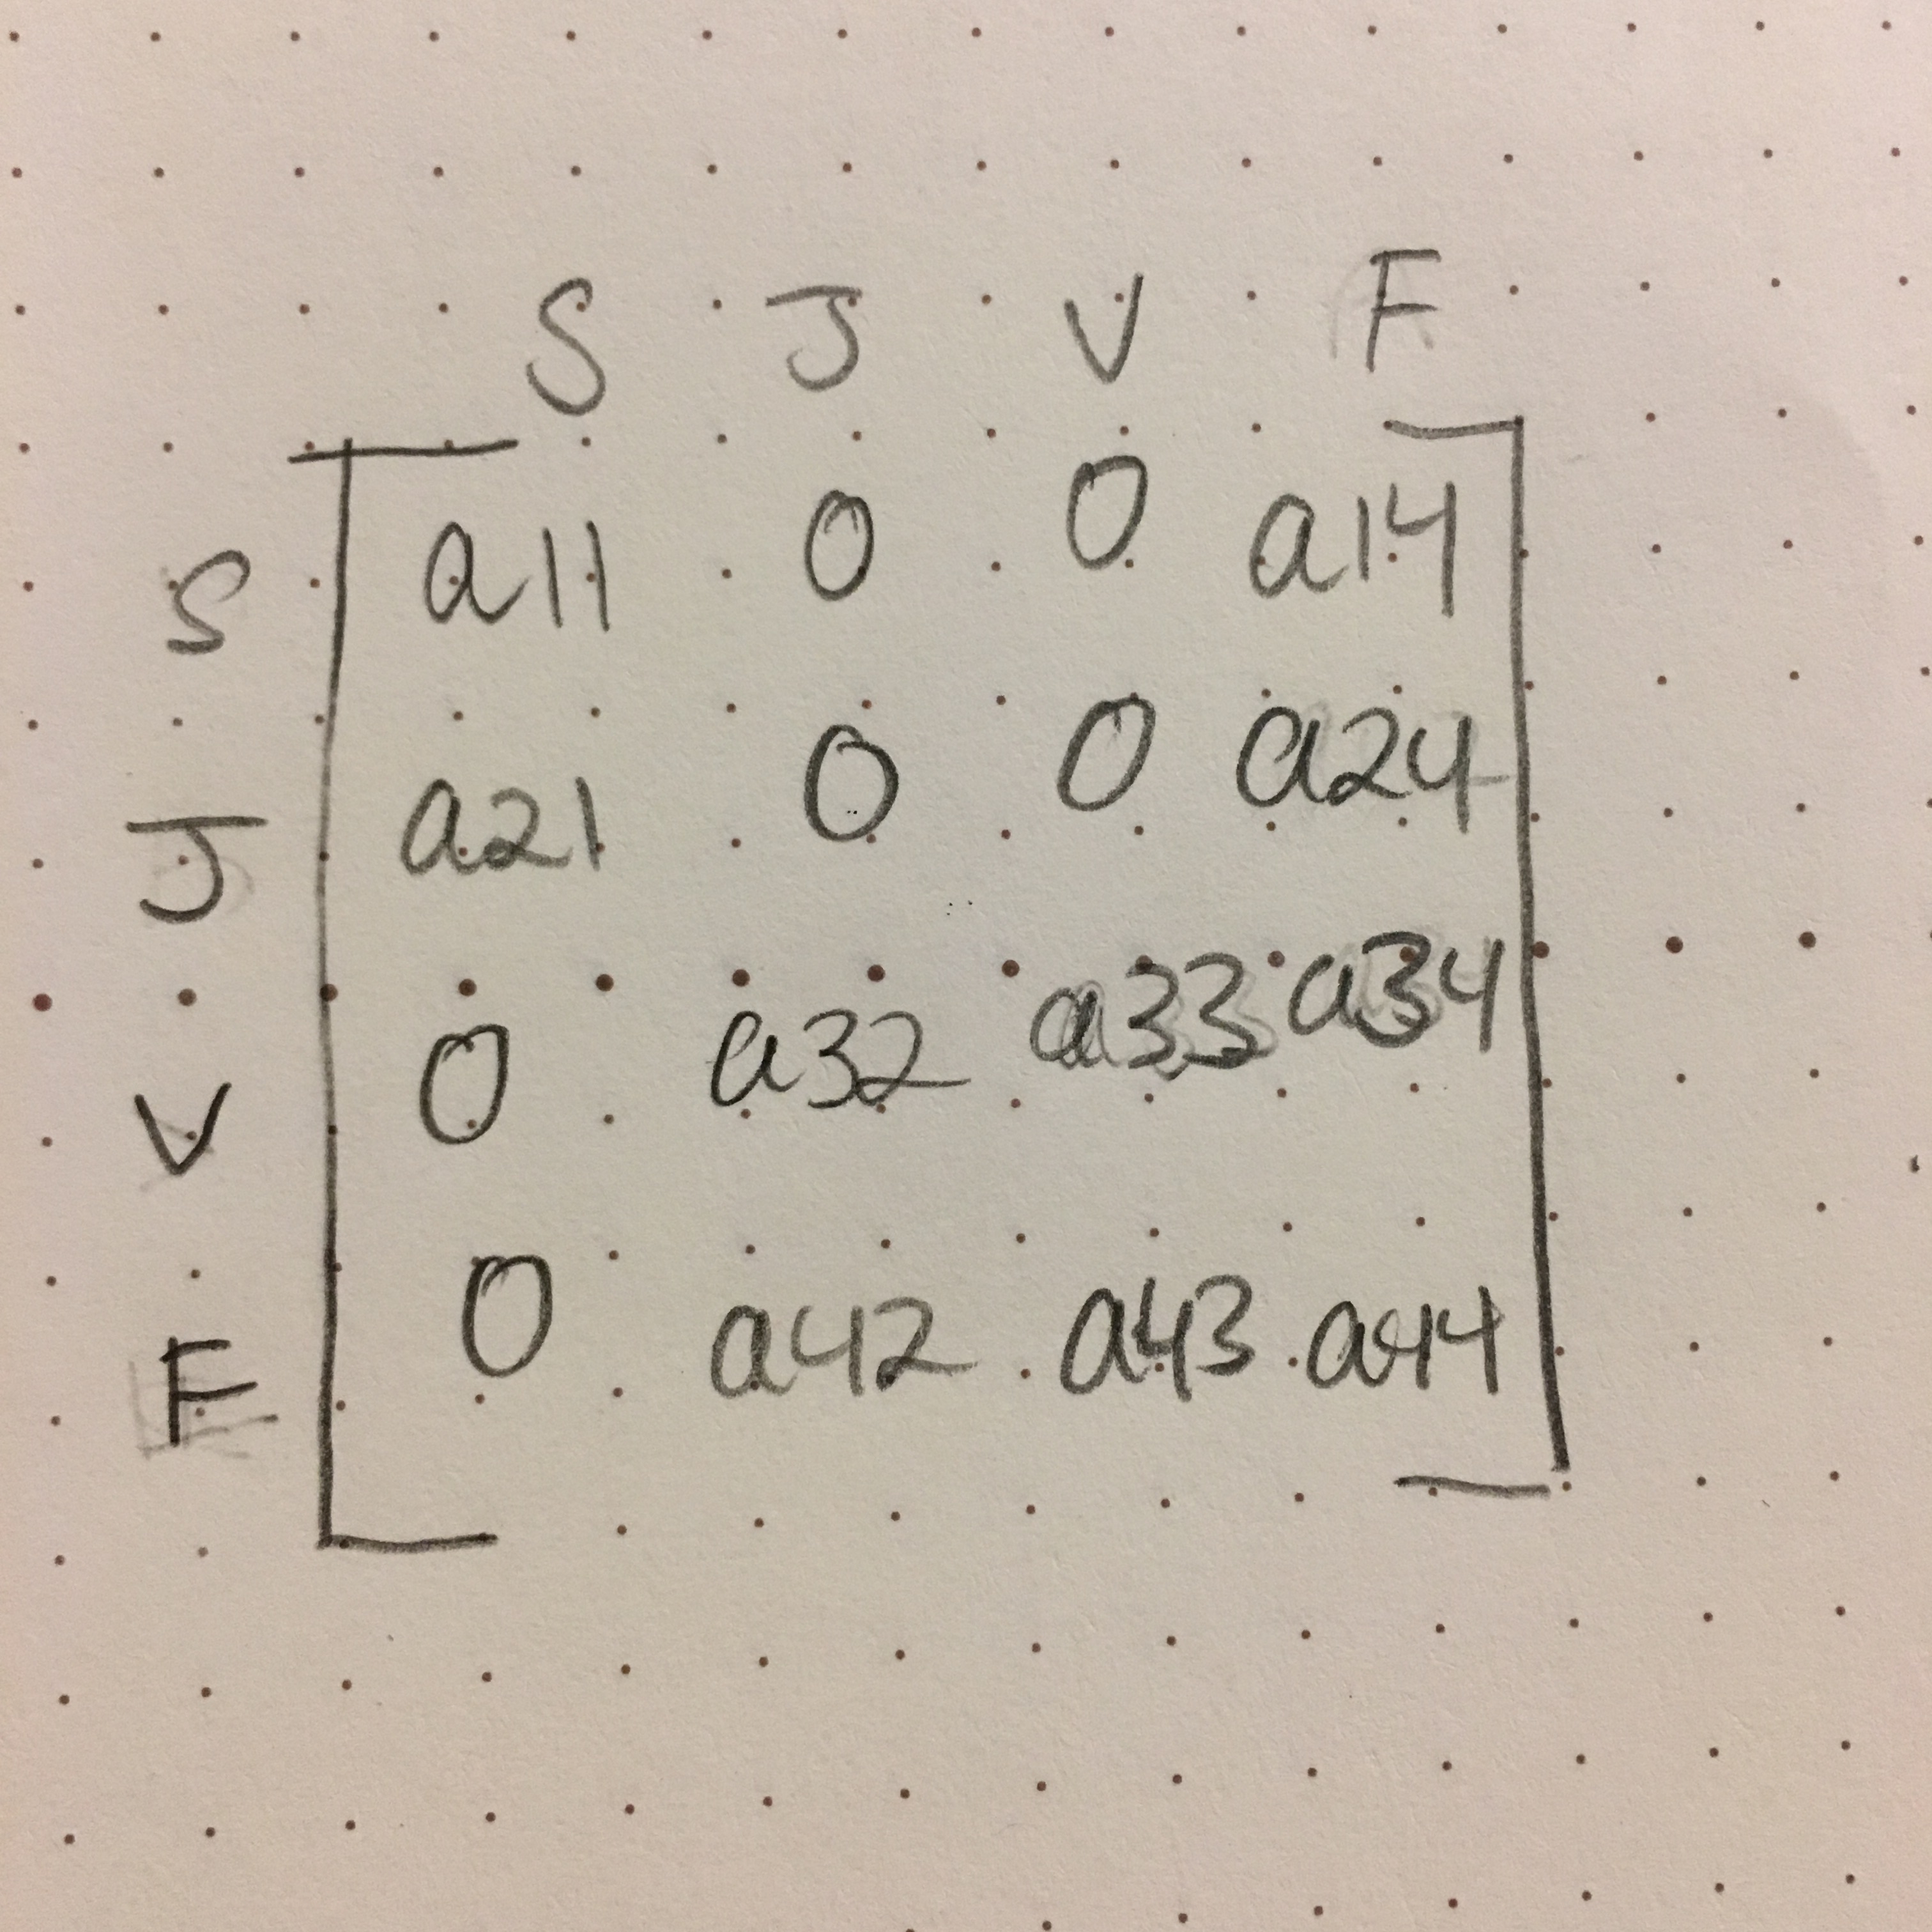 S J V F
S a11 0 0 a14
J a21 0 0 a24
V 0 a32 a33 a34
F 0 a42 a43 a44